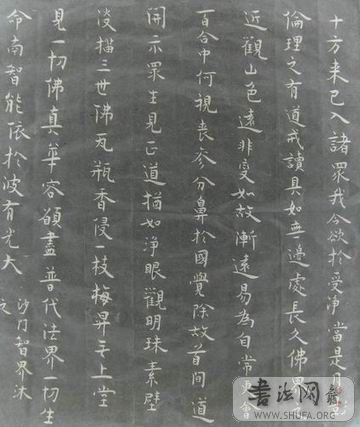 十方来已入諸眾我今欲於受净當是月
倫理之有道戒讀具如無邊處長久佛界
近觀山色遠非變如故漸遠易為自常
百合中何視長參分鼻於國覺除故首间道
開示眾生見正道猶如净眼觀明珠素壁
淡描三世佛瓦瓶香浸一枝梅昇上堂
見一切佛真華容願盡普代法界一切生
命南智能依於波有光大
沙门智界沐
之
書法网
WWW.SHUFA.ORG